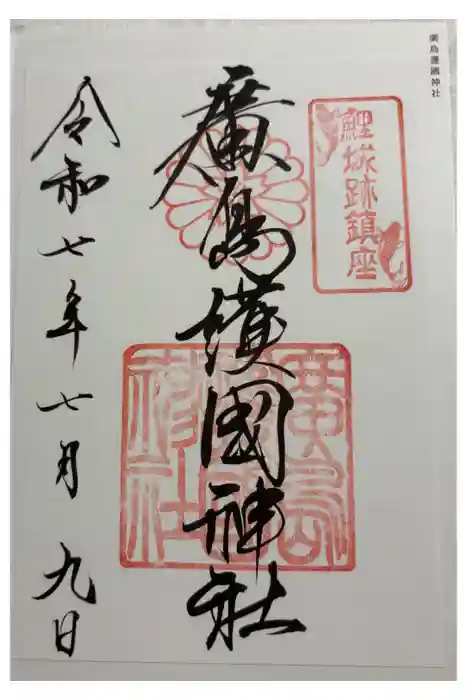 廣島護國神社
鯉城跡鎮座
廣島護國神社
廣島護國神社
令和七年七月九日